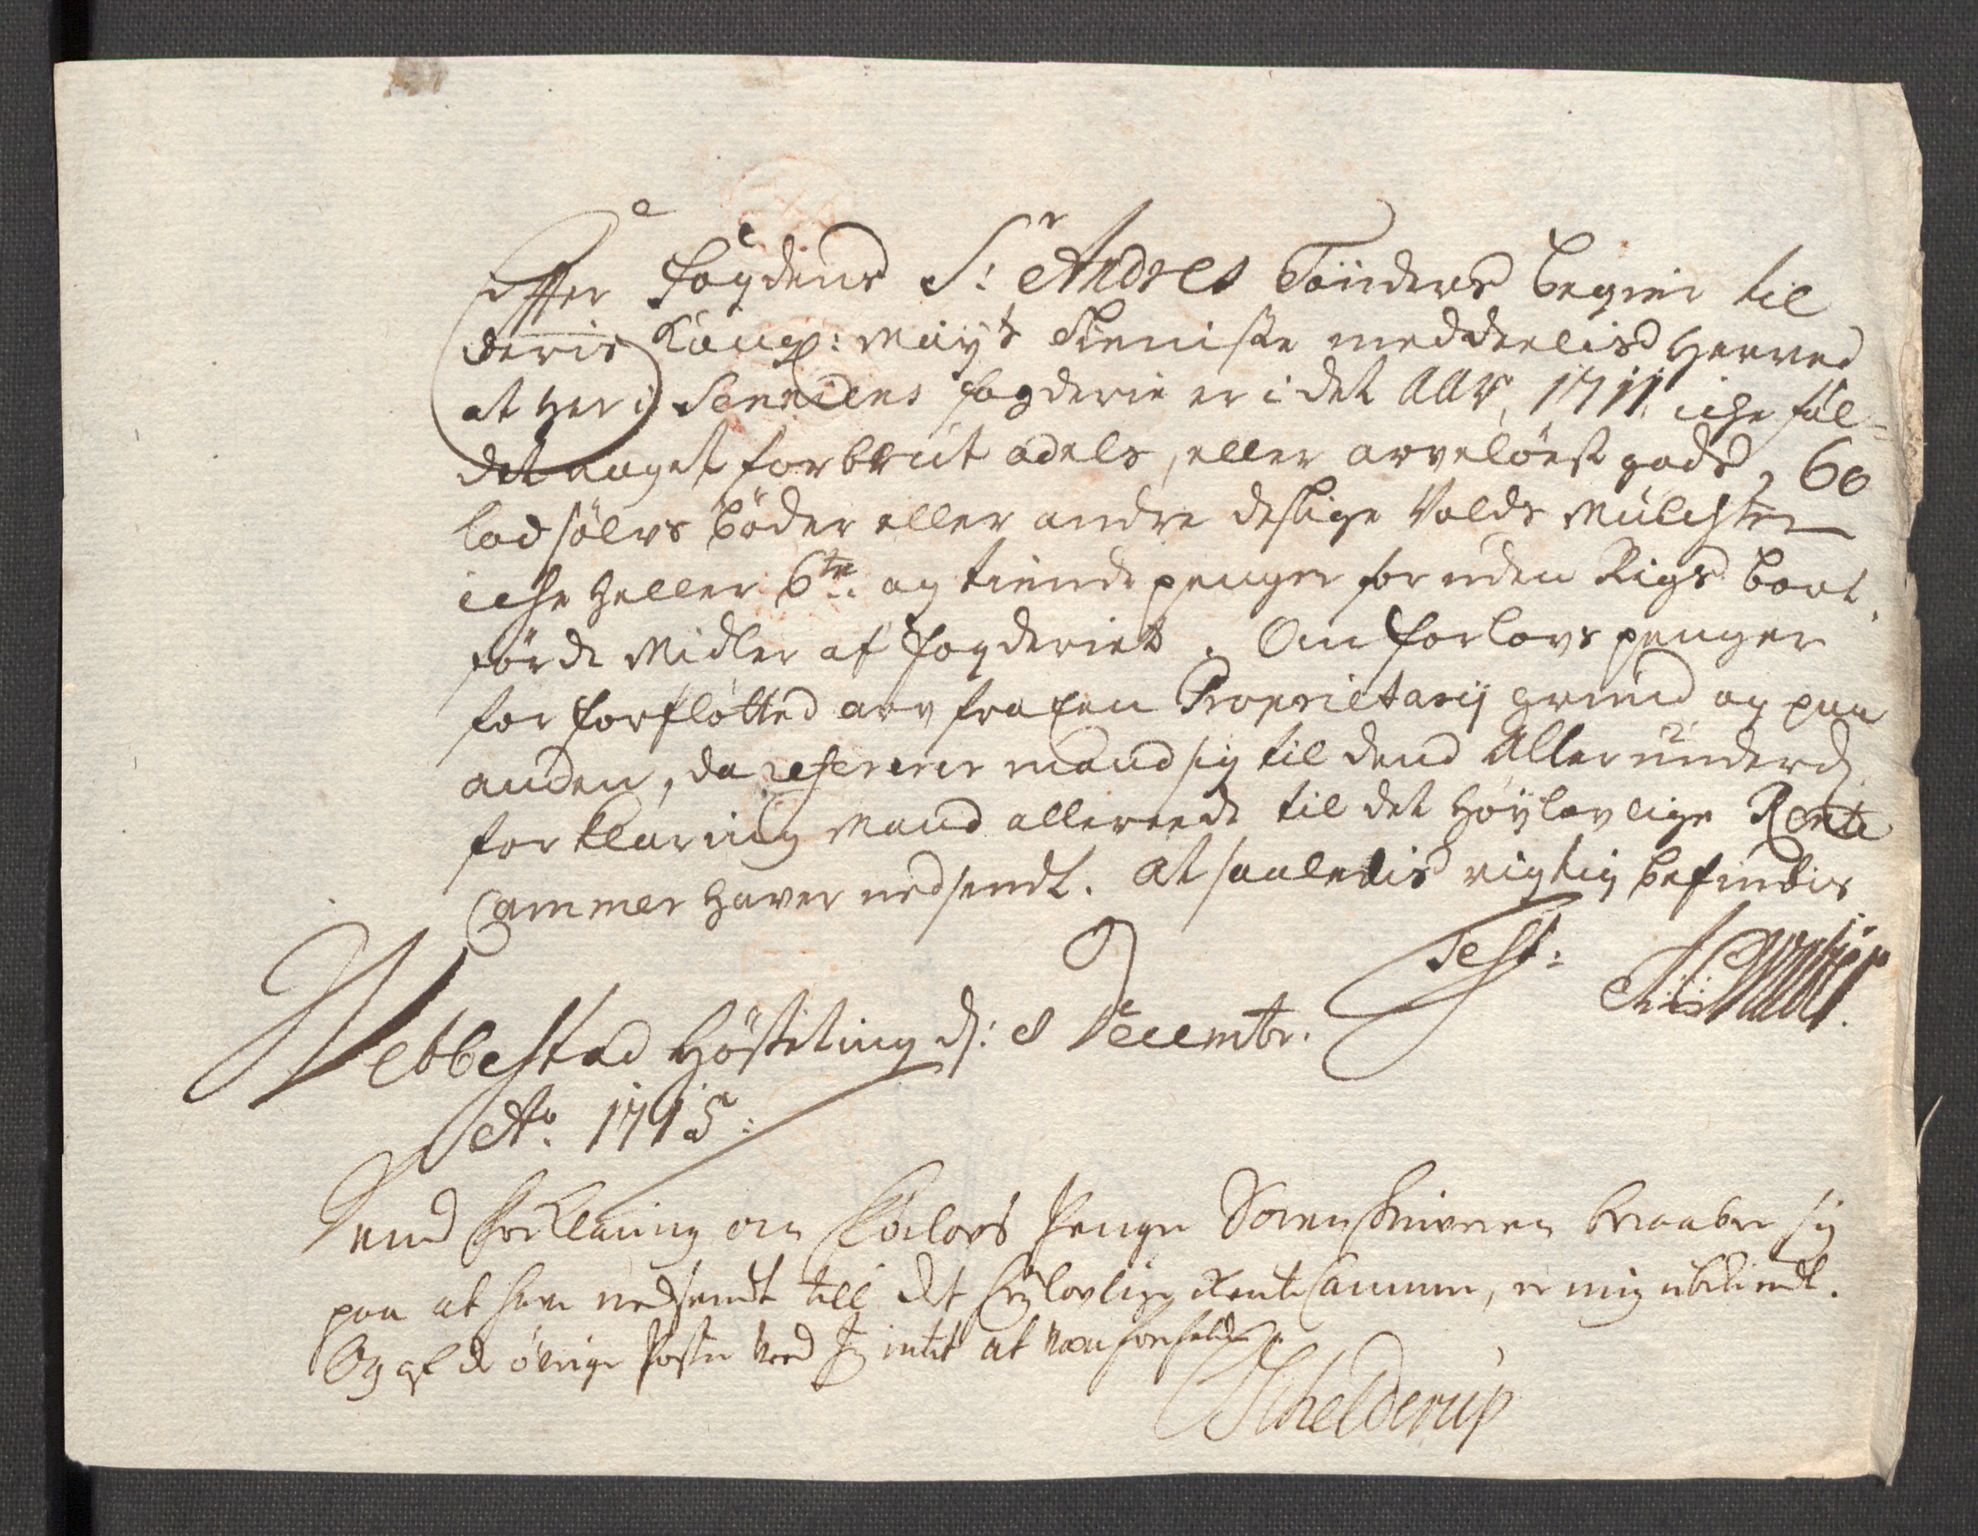 Effter Fogdens Sr: Andres Tönders begier til
deris Kongl: May:ts tieniste meddeelis herved
at her i Senniens fogderie er i det Aar 1711 iche fal-
det noget forbrut adels, eller arveløest gods, 60
lod sølvs bøder eller andre deslige Volds Mulchter
iche heller 6te: og tiende penger for uden Rigs bort
førde Midler af fogderiet. Om forlovs penger
for forflötted arv fra Een Proprietarij grund og paa
anden, da refererer mand sig til dend Allerunderd:
forklaring Mand allerede til det höylovlige Rente
Cammer haver nedsendt. At saaledis rigtig befindis
Test:
Webbestad Høsteting d: 8 Decembr.
Ao. 1715:
Dend forklaring om forlovs Penge Sorenskriveren beraaber sig
paa at have nedsendt till det høylovlige Rente Cammer, er mig ubekiendt.
Og af de øvrige Poster veed Jeg intet at
Schelderup